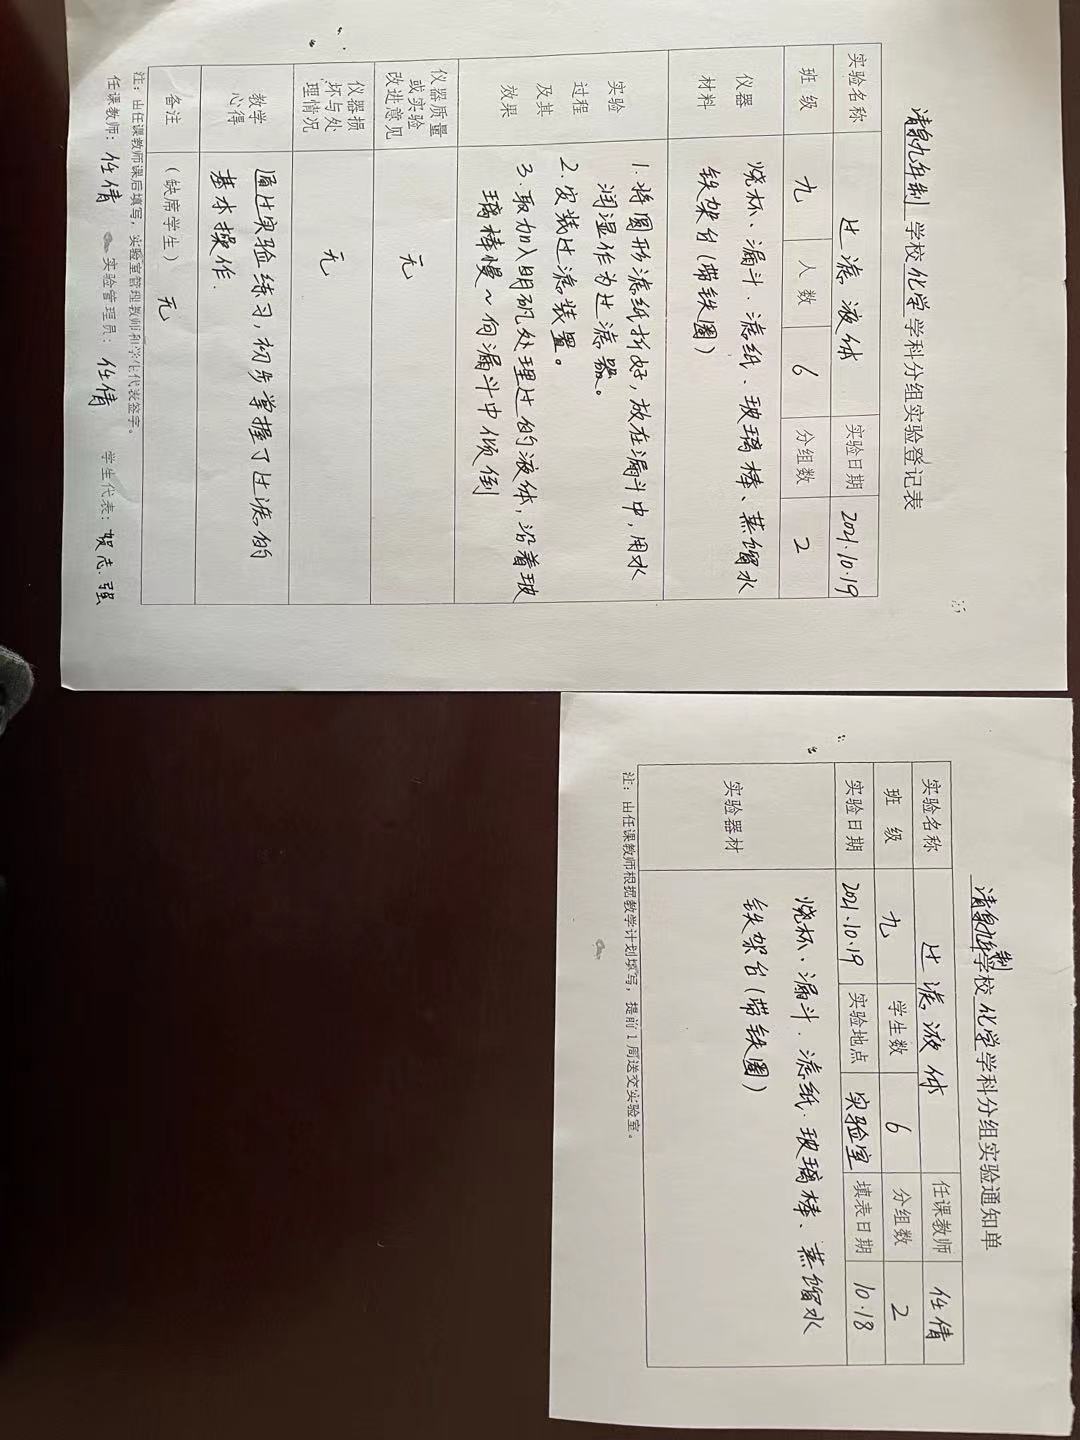 清泉九年制学校化学学科分组实验登记表
实验名称 过滤液体 实验日期 2021.10.19
班级 九 人数 6 分组数 2
仪器材料 烧杯、漏斗、滤纸、玻璃棒、蒸馏水
铁架台(带铁圈)
实验过程及其效果 1.将圆形滤纸折好,放在漏斗中,用水
润湿作为过滤器。
2.安装过滤装置。
3.取加入明矾处理过的液体,沿着玻
璃棒慢~向漏斗中倾倒
仪器质量或实验改进意见 无
仪器损坏与处理情况 无
教学心得 通过实验练习,初步掌握了过滤的
基本操作.
备注 (缺席学生) 无
注:由任课教师课后填写,实验室管理教师和学生代表签字。
任课教师:任倩 实验管理员:任倩 学生代表:贺志强
清泉九年制学校化学学科分组实验通知单
实验名称 过滤液体 任课教师 任倩
班级 九 学生数 6 分组数 2
实验日期 2021.10.19 实验地点 实验室 填表日期 10.18
实验器材 烧杯、漏斗、滤纸、玻璃棒、蒸馏水
铁架台(带铁圈)
注:由任课教师根据教学计划填写,提前1周送交实验室。